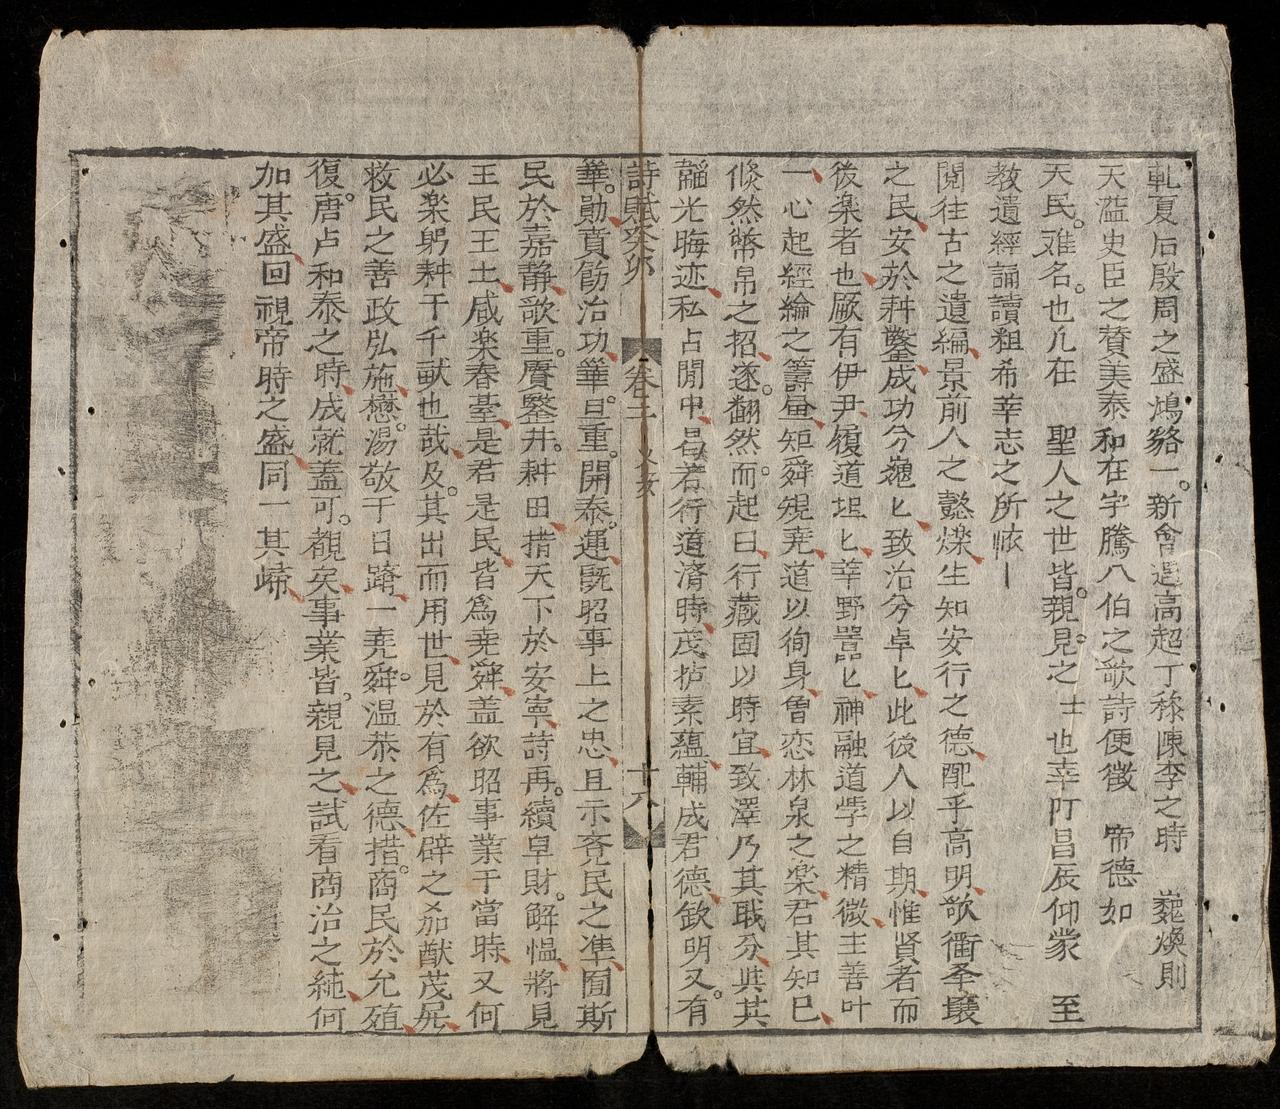 軋夏后殷周之盛鴻貉一新會遇高超丁禄陳李之時 巍煥則
天蓝史臣之賛美泰和在宇騰八伯之歌詩便徵 帝德如
天民难名也凢在 聖人之世皆親見之 士也幸叮昌辰仰蒙 至
教遺經誦讀粗希莘志之所
閱往古之遺編景前人之懿爍生知安行之德配乎高明欲衢圣壤
之民安於耕鑿成功兮巍匕致治兮卓匕此後人以自期惟賢者而
後楽者也厥有伊尹履道坦匕莘野嚣匕神融道斈之精微主善叶
一心起經綸之籌量矩舜䂓堯道以徇身曾恋林泉之楽君其知巳
倏然幣帛之招遂翻然而起曰行藏固以時宜致澤乃其戢分與其
韜光晦迹私占閒中曷若行道済時茂攄素蘊輔成君德欽明又有
詩賦癸卯 卷二 十六
華勛賁飭治功篳旦重開泰運既昭事上之忠且示吝民之凖囿斯
民於嘉静歌重賡鑿井耕田措天下於安寧詩再續阜財觧愠將見
王民王土咸楽春臺是君是民皆爲堯舜盖欲昭事業于當時又何
必楽躬耕于千畝也哉及其出而用世見於有爲佐辟之加猷茂
救民之善政弘施懋湯敬于日躋一堯舜温恭之德措商民於允殖
復唐卢和泰之時成就盖可覩矣事業皆親見之試看商治之純何
加其盛回視帝時之盛同一其㱕